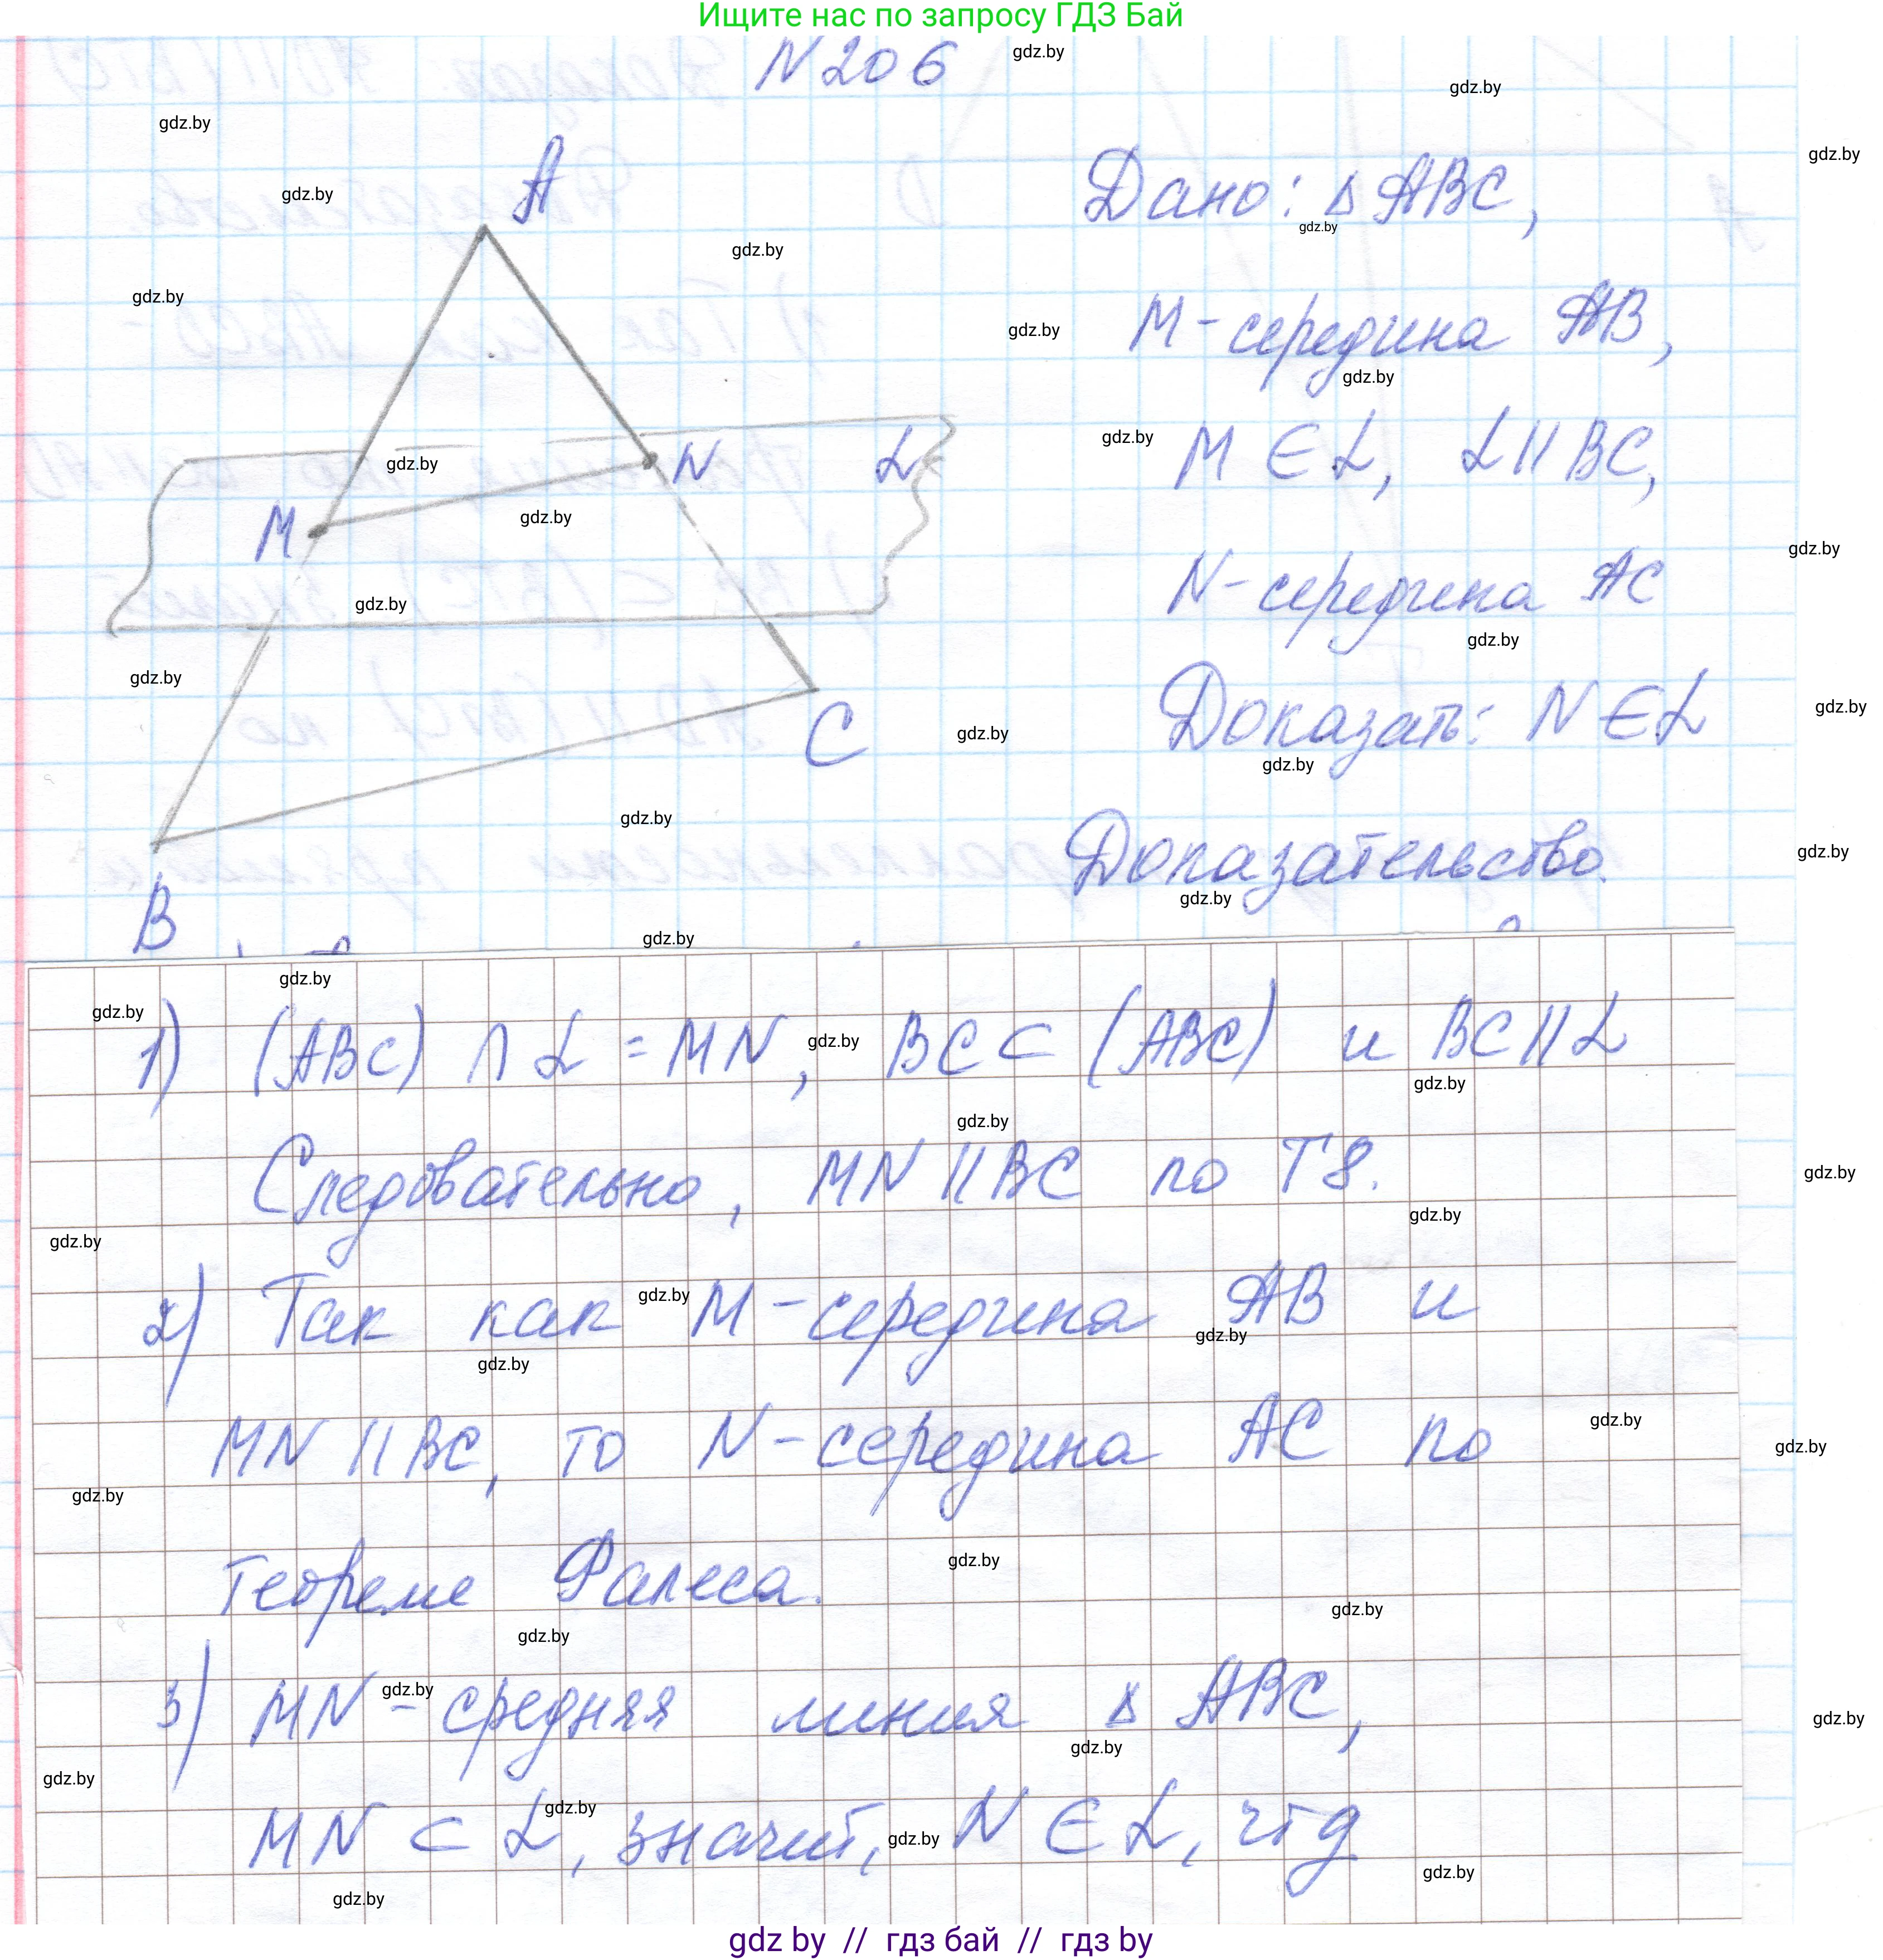 Ищите нас по запросу ГДЗ Бай
N 206
A
Дано: Δ ABC,
M-середина AB,
M ∈ α, α || BC,
N
α
M
N-середина AC
Доказать: N ∈ α
C
Доказательство.
B
1) (ABC) ∩ α = MN, BC ⊂ (ABC) и BC || α
Следовательно, MN || BC по Т 8.
2) Так как M-середина AB и
MN || BC, то N-середина AC по
теореме Фалеса.
3) MN-средняя линия Δ ABC,
MN ⊂ α, значит, N ∈ α, чтд
gdz by // гдз бай // гдз by